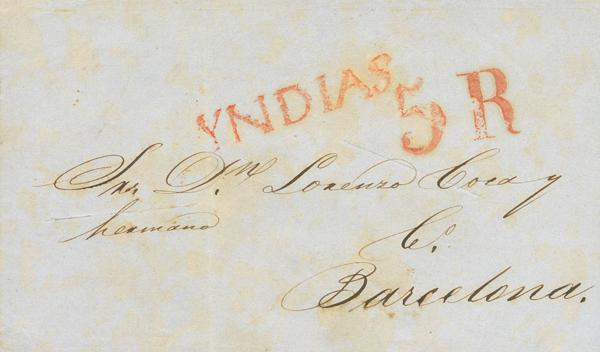 YNDIAS 5 R
Snr. Dn. Lorenzo Coca y
hermano
C.
Barcelona.